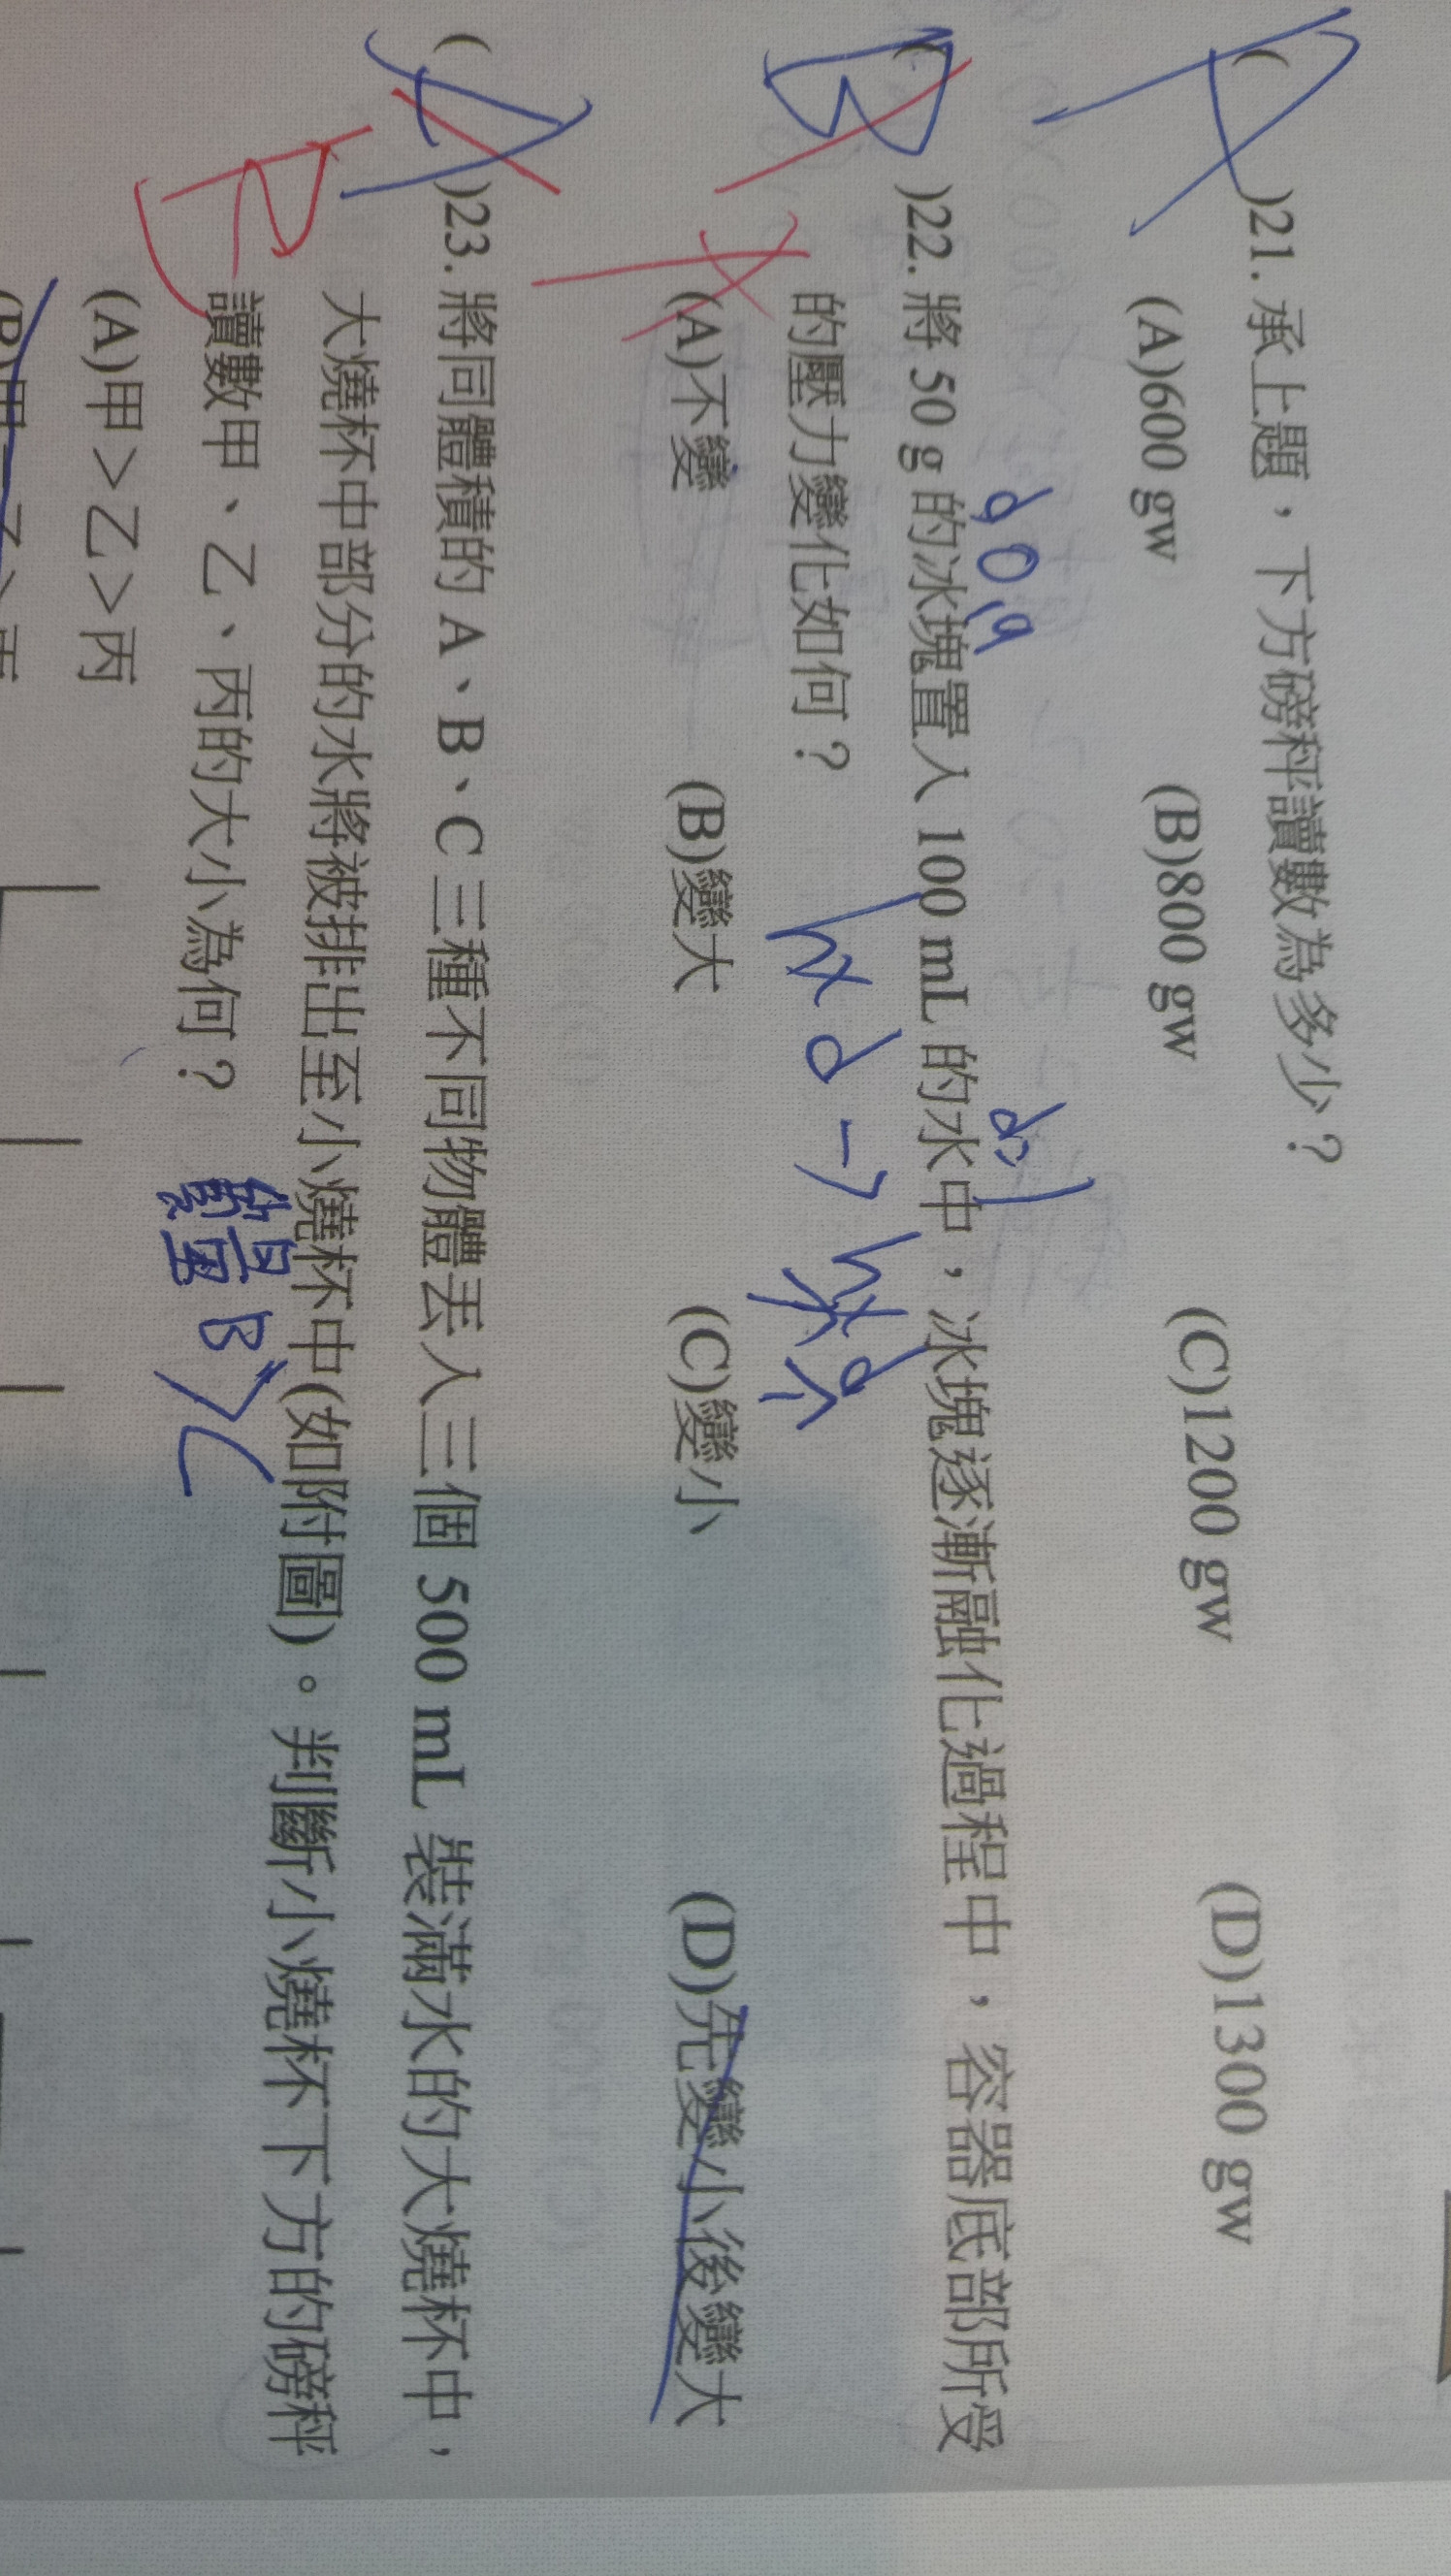 A
( )21. 承上題，下方磅秤讀數為多少？
(A)600 gw (B)800 gw (C)1200 gw (D)1300 gw
d 0.9 d=1
B
( )22. 將 50 g 的冰塊置入 100 mL 的水中，冰塊逐漸融化過程中，容器底部所受
的壓力變化如何？ h×d → h×d
A
(A)不變 (B)變大 (C)變小 (D)先變小後變大
A
( )23. 將同體積的 A、B、C 三種不同物體丟入三個 500 mL 裝滿水的大燒杯中，
大燒杯中部分的水將被排出至小燒杯中(如附圖)。判斷小燒杯下方的磅秤
B
讀數甲、乙、丙的大小為何？ B>C
(A)甲＞乙＞丙